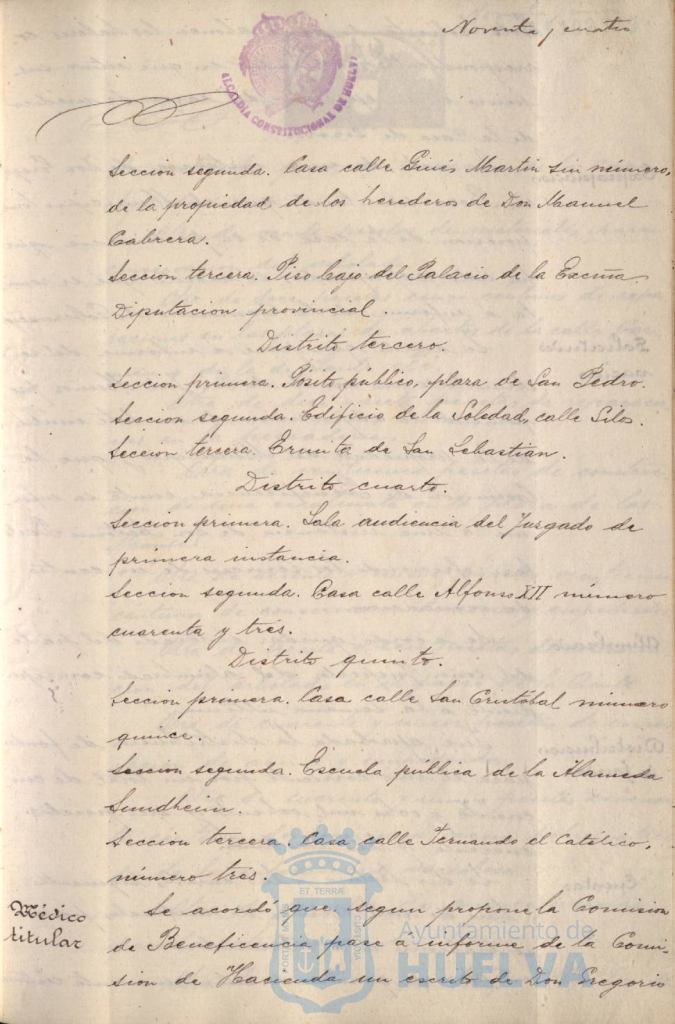 Noventa y cuatro
ALCALDIA CONSTITUCIONAL DE HUELVA
Seccion segunda. Casa calle Ginés Martin sin número,
de la propiedad de los herederos de Don Manuel
Cabrera.
Seccion tercera. Piso bajo del Palacio de la Excma
Diputacion provincial.
Distrito tercero.
Seccion primera. Pósito público, plaza de San Pedro.
Seccion segunda. Edificio de la Soledad, calle Silos.
Seccion tercera. Ermita de San Sebastian.
Distrito cuarto.
Seccion primera. Sala audiencia del Juzgado de
primera instancia.
Seccion segunda. Casa calle Alfonso XII número
cuarenta y tres.
Distrito quinto.
Seccion primera. Casa calle San Cristobal número
quince.
Seccion segunda. Escuela pública de la Alameda
Sundheim.
Seccion tercera. Casa calle Fernando el Católico,
número tres.
Médico
titular
Se acordó que, segun propone la Comision
de Beneficencia pase á informe de la Comi-
sion de Hacienda un escrito de Don Gregorio
Ayuntamiento de
HUELVA